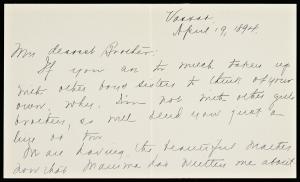 Vassar,
April 19, 1894.
My dearest Brother:
If you are to much taken up
with other boys sisters to think of your
own, why, I'm not with other girls
brothers, so will send you just a
line or two
We are having the beautiful weather
now that Mamma has written me about